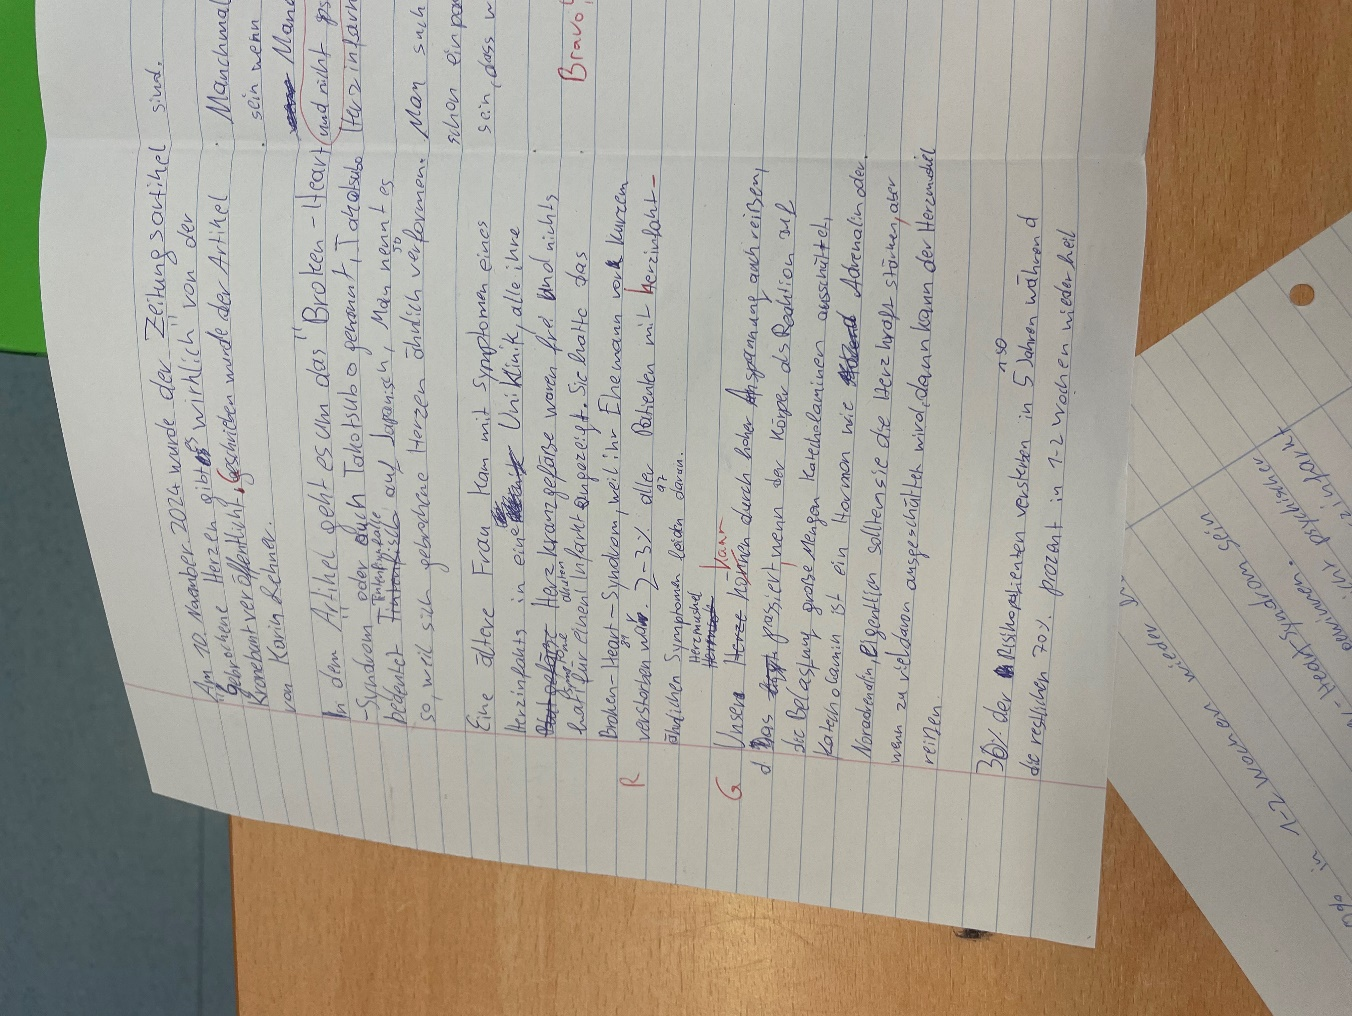 Am 10. November 2024 wurde der Zeitungsartikel
"gebrochene Herzen gibt es wirklich" von der
Kronebunt veröffentlicht, Geschrieben wurde der Artikel
von Karin Rehner.
In dem Artikel geht es um das "Broken-Heart
-Syndrom oder auch Takotsubo genannt, Takotsubo
bedeutet Tintenfischfalle auf Japanisch, Man nennt es
so, weil sich gebrochene Herzen so ähnlich verformen.
Eine ältere Frau kam mit Symptomen eines
Herzinfarkts in eine Uni Klinik, alle ihre
Herzkranzgefäße waren frei und nichts
hat für einen Infarkt angezeigt. Sie hatte das
Broken-Heart-Syndrom, weil ihr Ehemann vor kurzem
verstorben war. 2-3% aller Patienten mit herzinfakt-
ähnlichen Symptomen leiden daran.
R
G
Unser Herzmuskel kann durch hoher Anspannung auch reißen,
das passiert, wenn der Körper als Reaktion auf
die Belastung große Mengen Katecholaminen ausschüttelt,
Katecholamin ist ein Hormon wie Adrenalin oder
Noradrenalin, Eigentlich sollten sie die Herzkraft stärken, aber
wenn zu viel davon ausgeschütten wird, dann kann der Herzmuskel
reißen.
30% der Risikopatienten versterben in 5 Jahren während
die restlichen 70% prozent in 1-2 Wochen wieder heil
sind.
Manchmal
sein wenn
Man
und nicht
Herzinfark
Man
schon ein
sein, dass
Bravo!
in 1-2 Wochen wieder
-Heart Syndrom sein
psychischer